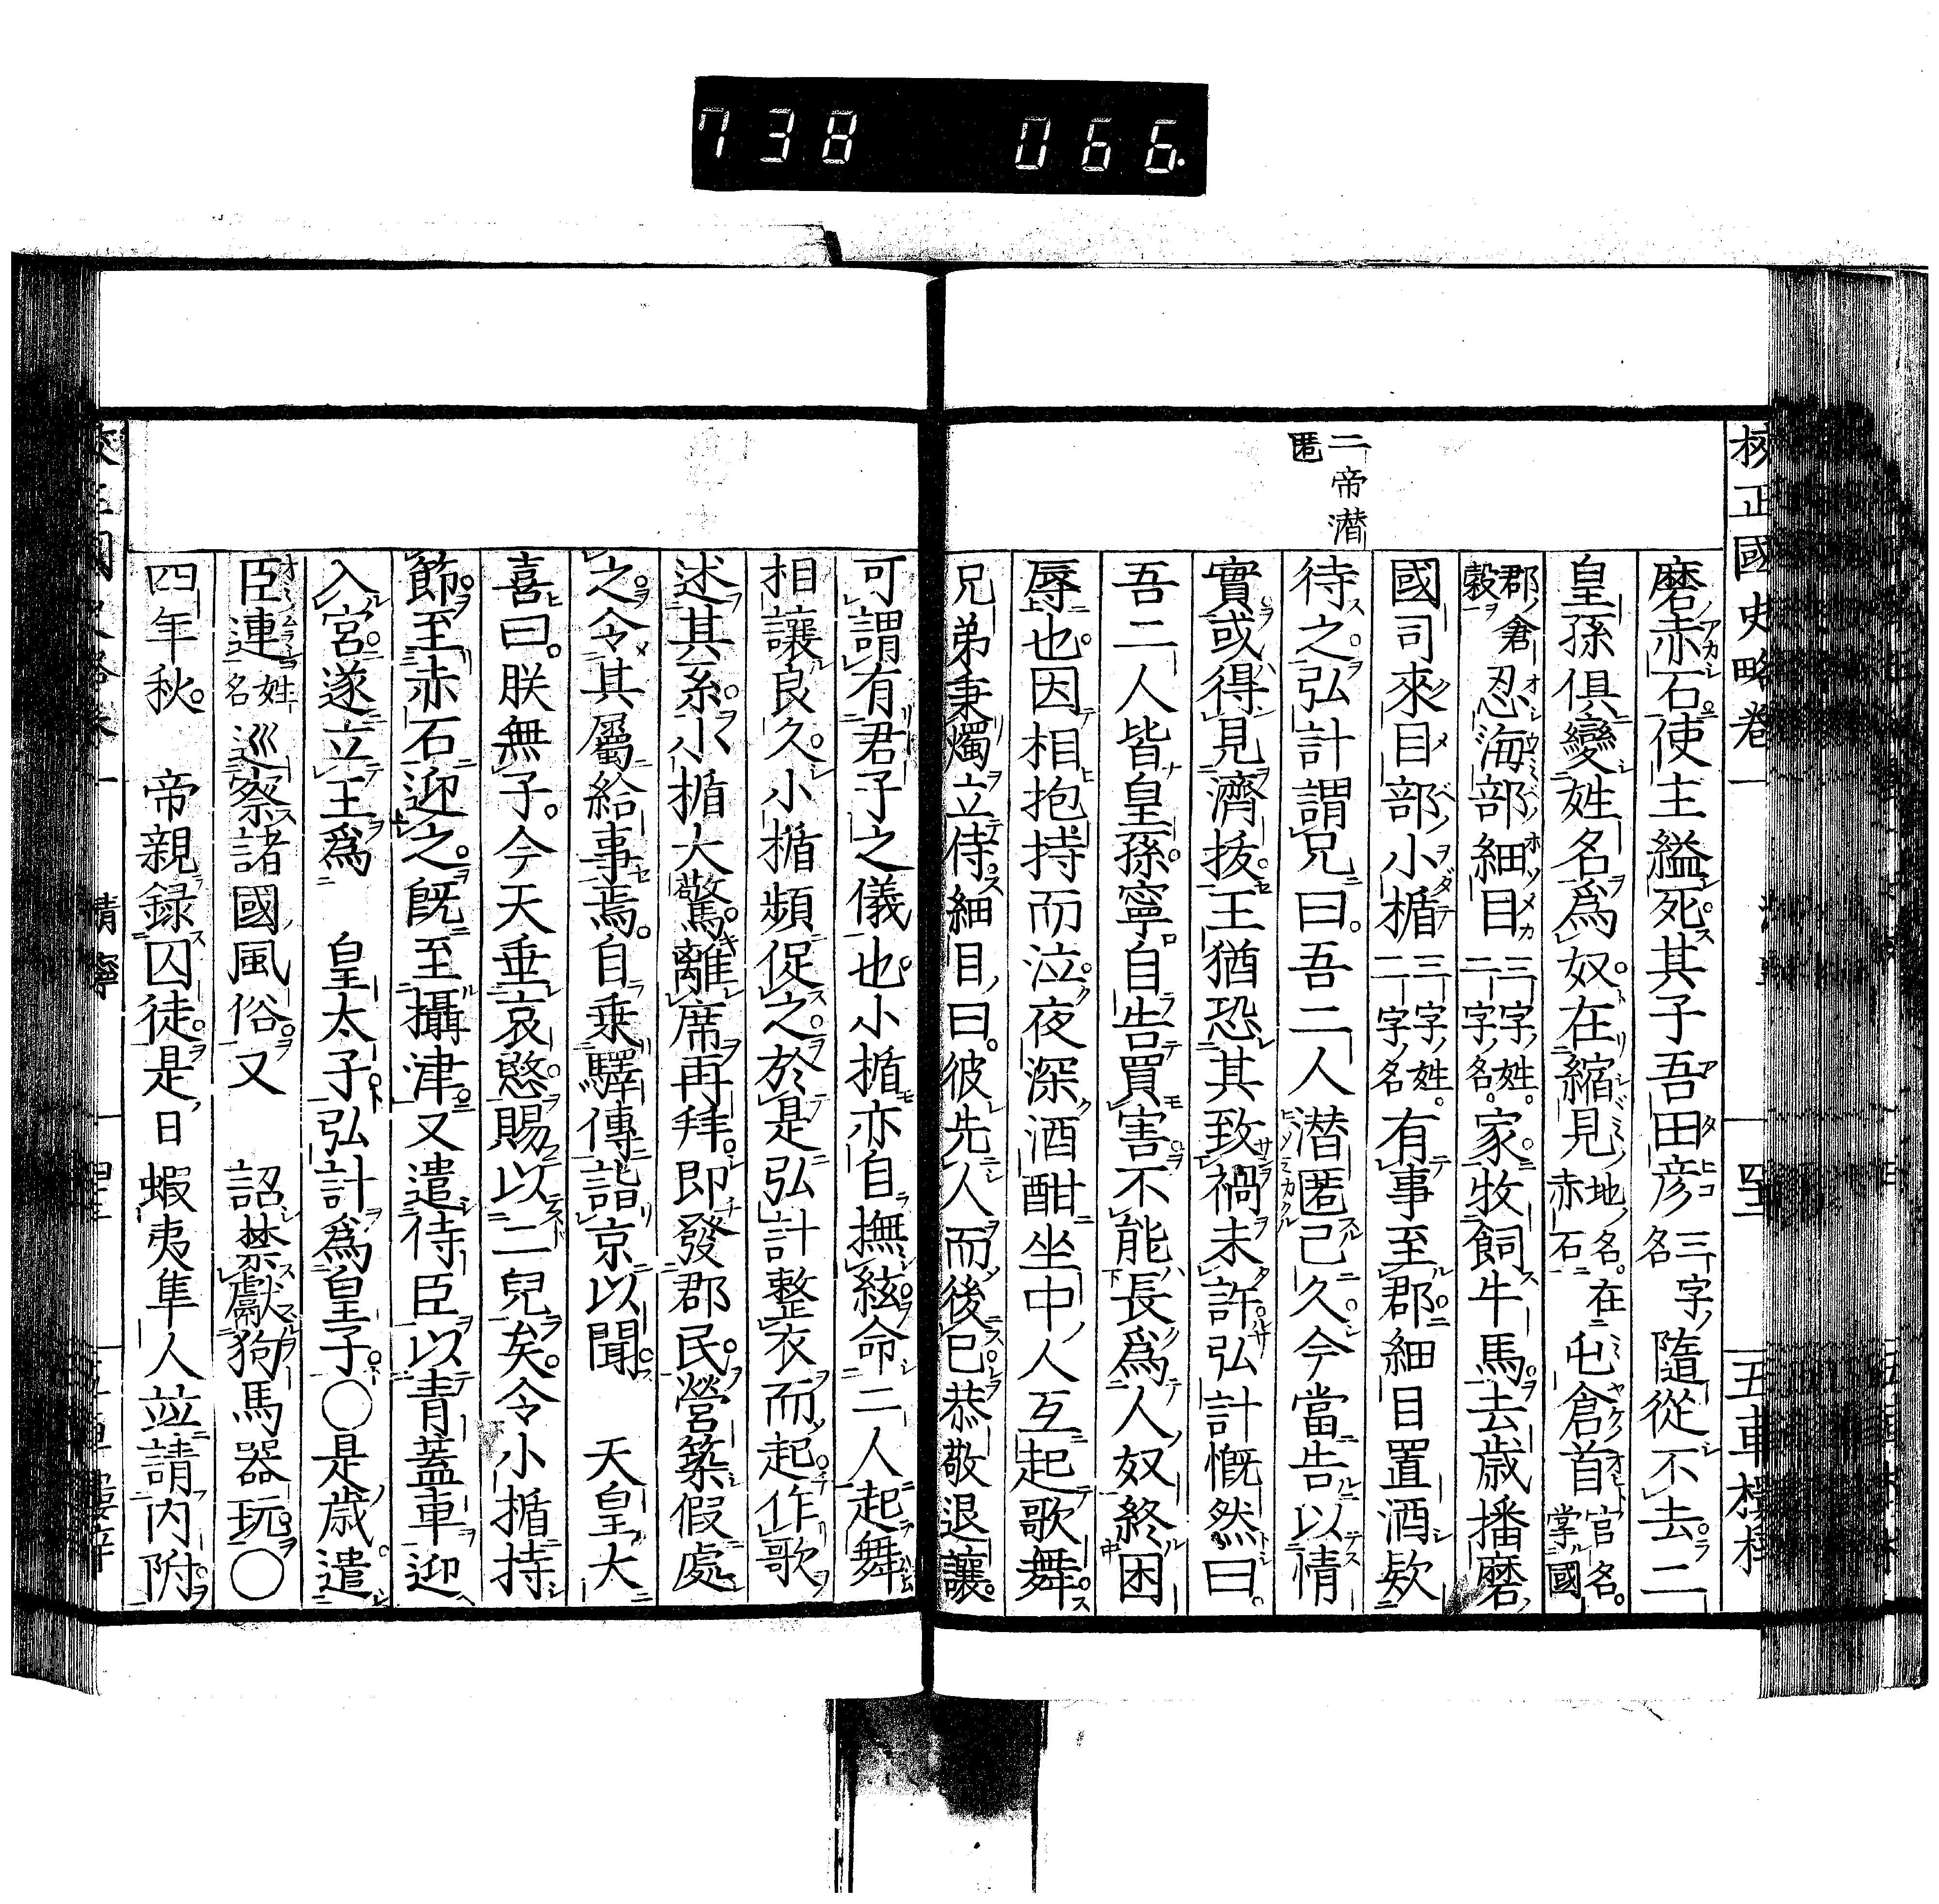 738 066.
校正國史略卷一 四十一 五車樓梓
二帝潜
匿
磨赤石使主縊死其子吾田彦三字ノ名隨從不去二
皇孫倶變姓名爲奴在縮見地ノ名在赤石屯倉首官名掌國
郡ノ倉穀忍海部細目三字ノ姓二字ノ名家牧飼牛馬去歳播磨
國司來目部小楯三字ノ姓二字ノ名有事至郡細目置酒欵
待之弘計謂兄曰吾二人潜匿己久今當告以情
實或得見濟拔王猶恐其致禍未許弘計慨然曰
吾二人皆皇孫寧自告買害不能長爲人奴終困
辱也因相抱持而泣夜深酒酣坐中人互起歌舞
兄弟秉燭立侍細目曰彼先人而後已恭敬退讓
可謂有君子之儀也小楯亦自撫絃命二人起舞
相讓良久小楯頻促之於是弘計整衣而起作歌
述其系小楯大驚離席再拜即發郡民營築假處
之令其屬給事焉自乗驛傳詣京以聞 天皇大
喜曰朕無子今天垂哀愍賜以二兒矣令小楯持
節至赤石迎之既至攝津又遣侍臣以青蓋車迎
入宮遂立王爲 皇太子弘計爲皇子〇是歳遣
臣連姓名巡察諸國風俗又 詔禁獻狗馬器玩〇
四年秋 帝親録囚徒是日蝦夷隼人並請内附
清寧